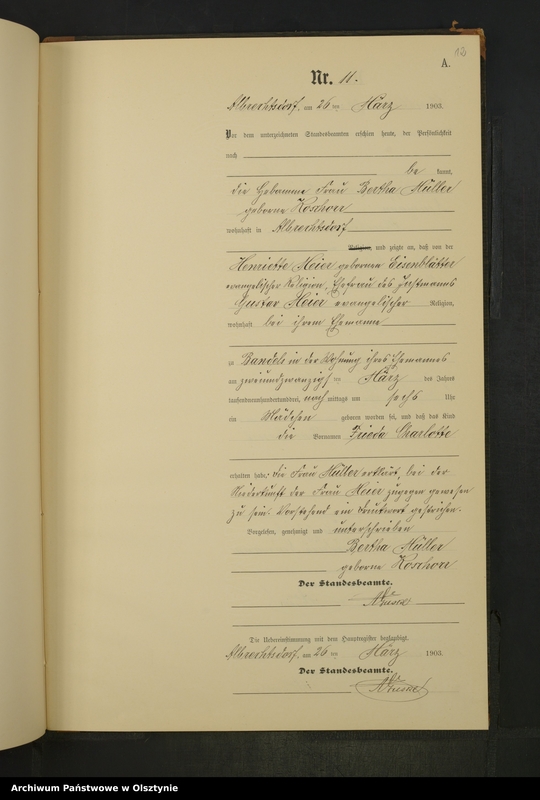 12
A.
Nr. 11.
Albrechtsdorf, am 26 ten März 1903.
Vor dem unterzeichneten Standesbeamten erschien heute, der Persönlichkeit
nach
be kannt,
die Hebamme Frau Bertha Müller
geborne Koschorr
wohnhaft in Albrechtsdorf
Religion, und zeigte an, daß von der
Henriette Meier geborenen Eisenblätter
evangelischer Religion, Ehefrau des Instmanns
Gustav Meier evangelischer Religion,
wohnhaft bei ihrem Ehemanne
zu Bandels in der Wohnung ihres Ehemannes
am zweiundzwanzigsten März des Jahres
tausendneunhundertunddrei, nach mittags um sechs Uhr
ein Mädchen geboren worden sei, und daß das Kind
die Vornamen Frieda Charlotte
erhalten habe. Die Frau Müller erklärt, bei der
Niederkunft der Frau Meier zugegen gewesen
zu sein. Vorstehend ein Druckwort gestrichen.
Vorgelesen, genehmigt und unterschrieben
Bertha Müller
geborne Koschorr
Der Standesbeamte.
Die Uebereinstimmung mit dem Hauptregister beglaubigt.
Albrechtsdorf, am 26 ten März 1903.
Der Standesbeamte.
Archiwum Państwowe w Olsztynie